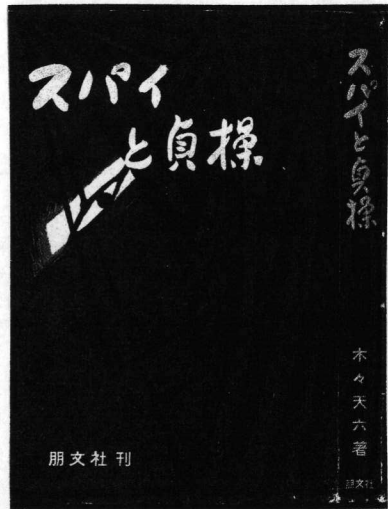 スパイ
と貞操
朋文社刊
スパイと貞操
木々天六著
朋文社